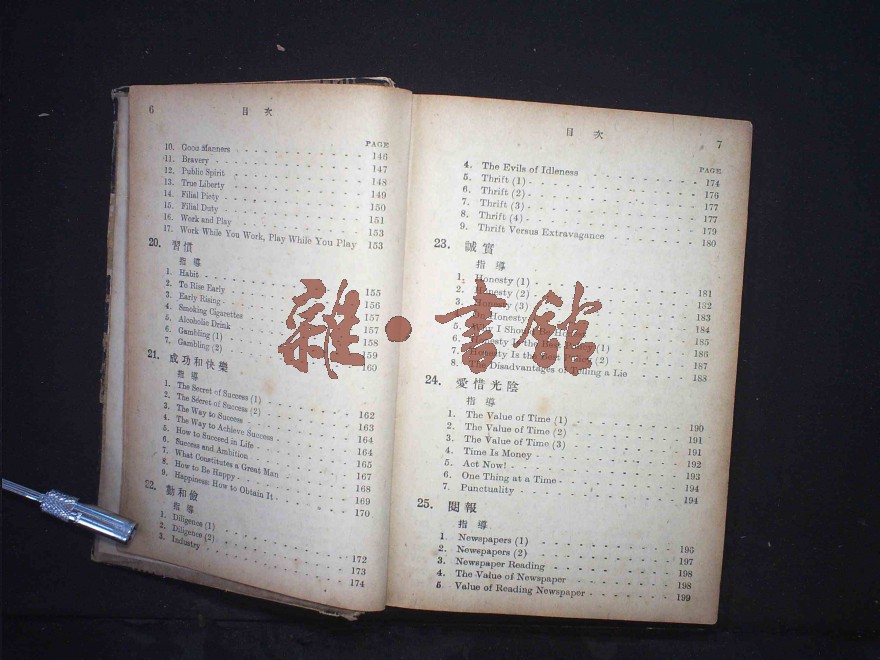 6 目次
PAGE
10. Good Manners 146
11. Bravery 147
12. Public Spirit 148
13. True Liberty 149
14. Filial Piety 150
15. Filial Duty 151
16. Work and Play 153
17. Work While You Work, Play While You Play 153
20. 習慣
指導
1. Habit 155
2. To Rise Early 156
3. Early Rising 157
4. Smoking Cigarettes 157
5. Alcoholic Drink 158
6. Gambling (1) 159
7. Gambling (2) 160
21. 成功和快樂
指導
1. The Secret of Success (1) 162
2. The Secret of Success (2) 163
3. The Way to Success 164
4. The Way to Achieve Success 164
5. How to Succeed in Life 165
6. Success and Ambition 167
7. What Constitutes a Great Man 168
8. How to Be Happy 169
9. Happiness: How to Obtain It 170
22. 勤和儉
指導
1. Diligence (1) 172
2. Diligence (2) 173
3. Industry 174
目次 7
PAGE
4. The Evils of Idleness 174
5. Thrift (1) 176
6. Thrift (2) 177
7. Thrift (3) 177
8. Thrift (4) 179
9. Thrift Versus Extravagance 180
23. 誠實
指導
1. Honesty (1) 181
2. Honesty (2) 182
3. Honesty (3) 183
4. On Honesty 184
5. Why I Should Be 185
6. Honesty Is the Best Policy (1) 186
7. Honesty Is the Best Policy (2) 187
8. The Disadvantages of Telling a Lie 188
24. 愛惜光陰
指導
1. The Value of Time (1) 190
2. The Value of Time (2) 191
3. The Value of Time (3) 191
4. Time Is Money 192
5. Act Now! 193
6. One Thing at a Time 194
7. Punctuality 194
25. 閱報
指導
1 Newspapers (1) 196
2. Newspapers (2) 197
3. Newspaper Reading 198
4. The Value of Newspaper 198
5. Value of Reading Newspaper 199
雜·書館